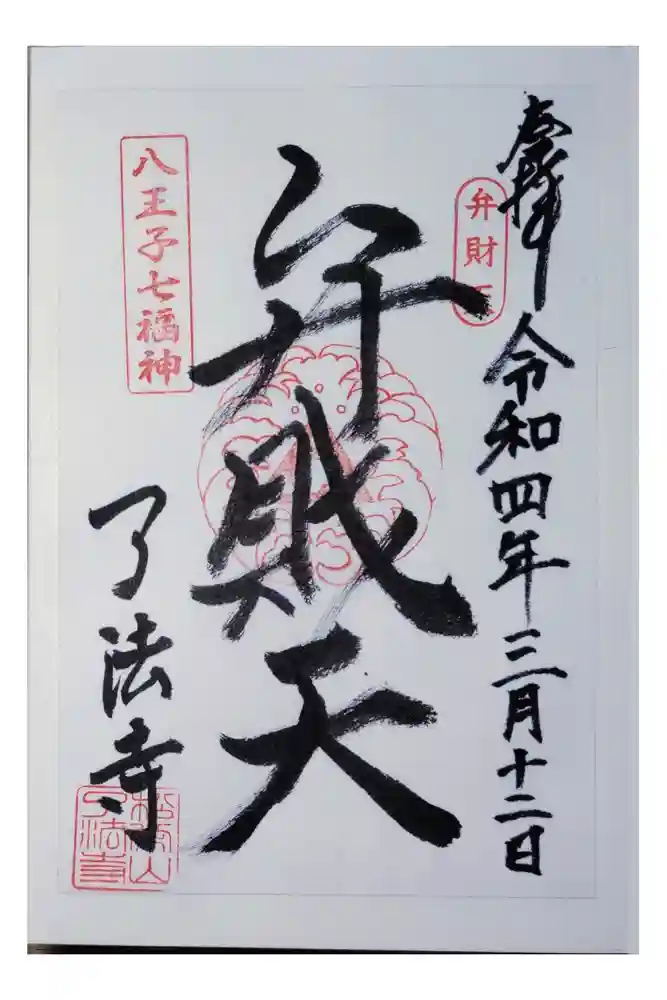 奉拝 令和四年三月十二日
弁財天
弁財天
八王子七福神
了法寺
松栄山
了法寺